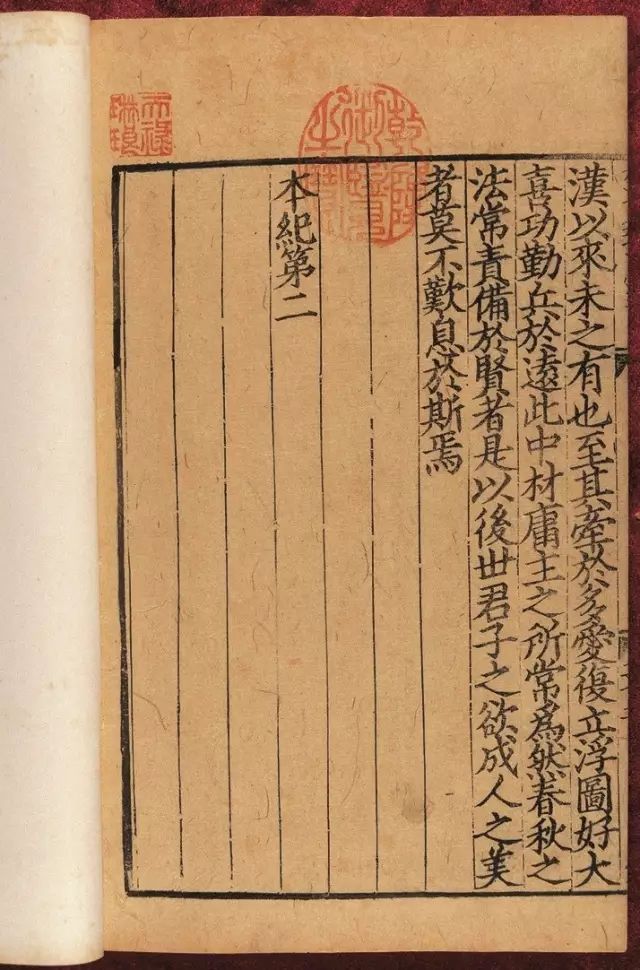 漢以來未之有也至其牽於多愛復立浮圖好大
喜功勤兵於遠此中材庸主之所常爲然春秋之
法常責備於賢者是以後世君子之欲成人之美
者莫不歎息於斯焉
本紀第二
天祿
琳琅
乾隆
御覽
之寶